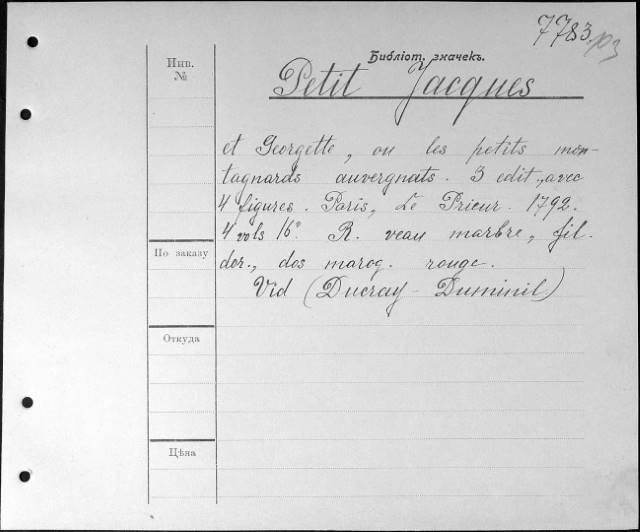 7783
Библіот. значекъ.
Инв.
№
Petit Jacques
et Georgette, ou les petits mon-
tagnards auvergnats. 3 edit., avec
4 figures. Paris, Le Prieur. 1792.
4 vols 16°. R. veau marbre, fil.
dor., dos maroq. rouge.
Vid (Ducray-Duminil)
По заказу
Откуда
Цѣна